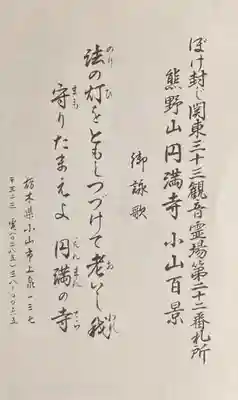 ぼけ封じ関東三十三観音霊場第二十二番札所
熊野山 円満寺 小山百景
御詠歌
法の灯をともしつづけて老いし我
守りたまえよ 円満の寺
栃木県小山市上泉一三七